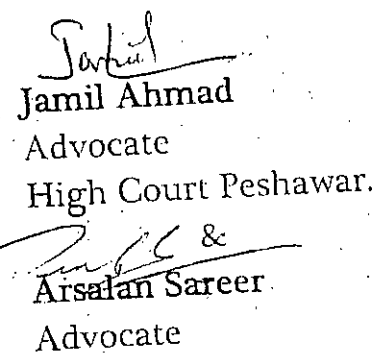 Jamil Ahmad
Advocate
High Court Peshawar.
&
Arsalan Sareer
Advocate